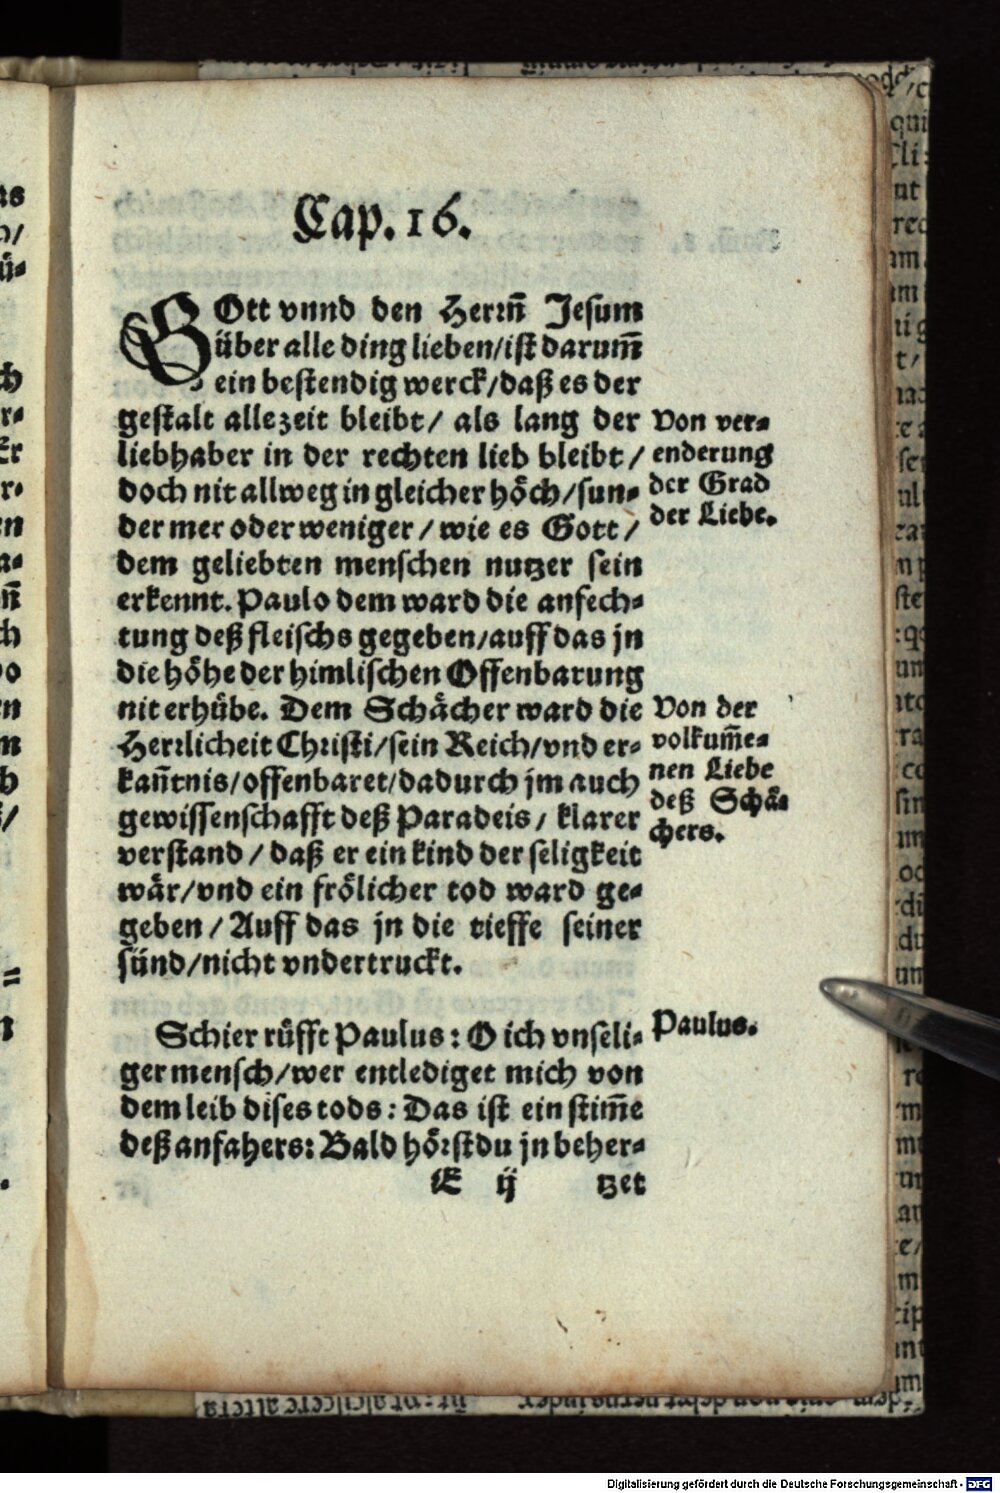 Cap. 16.
GOtt vnnd den Herrn̄ Jesum
über alle ding lieben/ist darum̄
ein bestendig werck/daß es der
gestalt allezeit bleibt/ als lang der
liebhaber in der rechten lieb bleibt/
doch nit allweg in gleicher höch/sun-
der mer oder weniger/ wie es Gott/
dem geliebten menschen nutzer sein
erkennt. Paulo dem ward die anfech-
tung deß fleischs gegeben/auff das jn
die höhe der himlischen Offenbarung
nit erhübe. Dem Schächer ward die
Herrlicheit Christi/sein Reich/vnd er-
kan̄tnis/offenbaret/dadurch jm auch
gewissenschafft deß Paradeis/ klarer
verstand/ daß er ein kind der seligkeit
wär/vnd ein frölicher tod ward ge-
geben/ Auff das jn die tieffe seiner
sünd/nicht vndertruckt.
Schier rüfft Paulus: O ich vnseli-
ger mensch/wer entlediget mich von
dem leib dises tods: Das ist ein stim̄e
deß anfahers: Bald hörst du jn beher-
E ij tzet
Von ver-
enderung
der Grad
der Liebe.
Von der
volkum̄e-
nen Liebe
deß Schä-
chers.
Paulus.
Digitalisierung gefördert durch die Deutsche Forschungsgemeinschaft - DFG